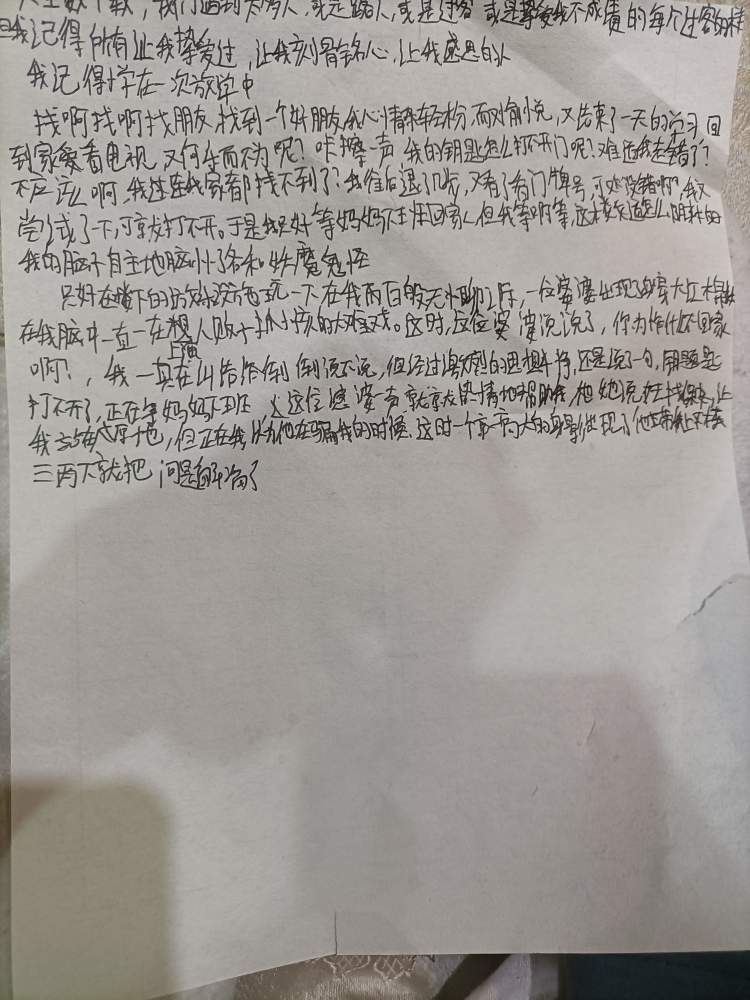 人生数十载，我们遇到太多人，或是路人，或是过客 或是 我不成 的每个过客的
但我记得所有让我挚爱过，让我刻骨铭心，让我感恩的人
我记得 在一次放学中
找啊找啊找朋友 找到一个好朋友 我心情 轻 而对 悦，又结束了一天的学习 回
到家 看电视 又何乐而不为呢？咔擦一声 我的钥匙怎么打不开门呢？难道我走错了？
不应该啊，我连连我家都找不到了？我往后退了几步，又看了看门牌号，可 没错啊？我又
尝试了一下，可就打不开。于是我只好等妈妈下班回家，但我等啊等，这楼道怎么阴森的
我的脑不自主地脑补了各种妖魔鬼怪
只好在楼下的 玩一下 在我两百般无聊之际，一位婆婆出现了 穿大红棉袄
在我脑中一直一在想人贩子抓小孩的大 戏。这时，这位婆婆说说了，你为什么不回家
啊？，我一真在纠结给倒 倒说不说，但经过激烈的思想斗争，还是说了一句，用题匙
打不开了，正在等妈妈下班 这位 婆 就 热情地帮助我，他她说在找 ，让
我 原地，但正在我认为他在骗我的时候，这时一个 大的身影出现了他 让
三两下就把 问是解 了